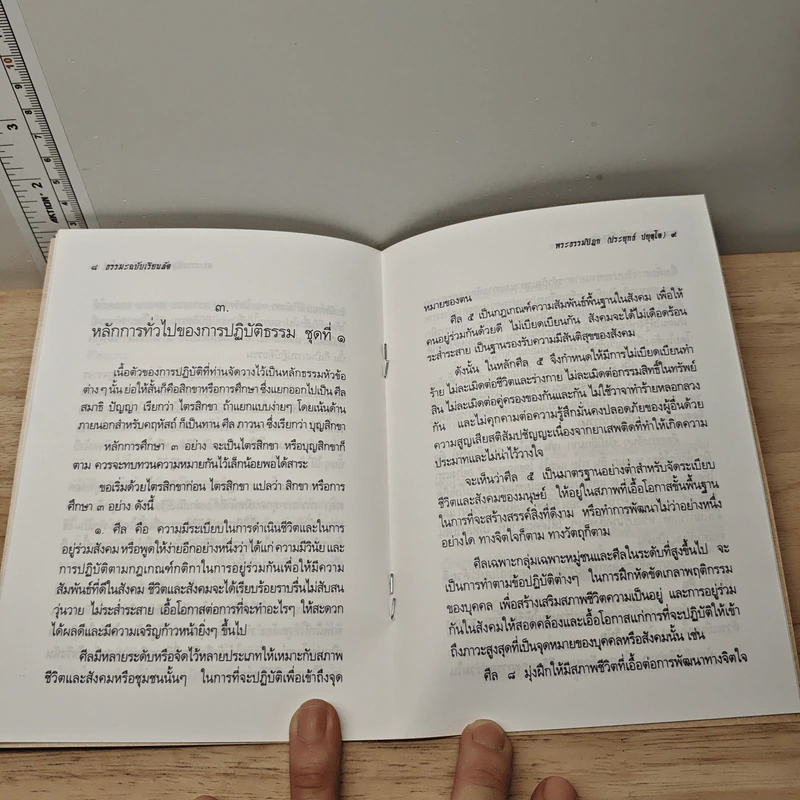 ๘ ธรรมะฉบับเรียนลัด
๓.
หลักการทั่วไปของการปฏิบัติธรรม ชุดที่ ๑
เนื้อตัวของการปฏิบัติที่ท่านจัดวางไว้เป็นหลักธรรมหัวข้อ
ต่างๆ นั้น ย่อให้สั้นก็คือสิกขาหรือการศึกษา ซึ่งแยกออกไปเป็น ศีล
สมาธิ ปัญญา เรียกว่า ไตรสิกขา ถ้าแยกแบบง่ายๆ โดยเน้นด้าน
ภายนอกสำหรับคฤหัสถ์ ก็เป็นทาน ศีล ภาวนา ซึ่งเรียกว่า บุญสิกขา
หลักการศึกษา ๓ อย่าง จะเป็นไตรสิกขา หรือบุญสิกขาก็
ตาม ควรจะทบทวนความหมายกันไว้เล็กน้อยพอได้สาระ
ขอเริ่มด้วยไตรสิกขาก่อน ไตรสิกขา แปลว่า สิกขา หรือการ
ศึกษา ๓ อย่าง ดังนี้
๑. ศีล คือ ความมีระเบียบในการดำเนินชีวิตและในการ
อยู่ร่วมสังคม หรือพูดให้ง่ายอีกอย่างหนึ่งว่า ได้แก่ ความมีวินัย และ
การปฏิบัติตามกฎเกณฑ์กติกาในการอยู่ร่วมกันเพื่อให้มีความ
สัมพันธ์ที่ดีในสังคม ชีวิตและสังคมจะได้เรียบร้อยราบรื่นไม่สับสน
วุ่นวาย ไม่ระส่ำระสาย เอื้อโอกาสต่อการที่จะทำอะไรๆ ให้สะดวก
ได้ผลดีและมีความเจริญก้าวหน้ายิ่งๆ ขึ้นไป
ศีลมีหลายระดับหรือจัดไว้หลายประเภทให้เหมาะกับสภาพ
ชีวิตและสังคมหรือชุมชนนั้นๆ ในการที่จะปฏิบัติเพื่อเข้าถึงจุด
พระธรรมปิฎก (ประยุทธ์ ปยุตฺโต) ๙
หมายของตน
ศีล ๕ เป็นกฎเกณฑ์ความสัมพันธ์พื้นฐานในสังคม เพื่อให้
คนอยู่ร่วมกันด้วยดี ไม่เบียดเบียนกัน สังคมจะได้ไม่เดือดร้อน
ระส่ำระสาย เป็นฐานรองรับความมีสันติสุขของสังคม
ดังนั้น ในหลักศีล ๕ จึงกำหนดให้มีการไม่เบียดเบียนทำ
ร้าย ไม่ละเมิดต่อชีวิตและร่างกาย ไม่ละเมิดต่อกรรมสิทธิ์ในทรัพย์
สิน ไม่ละเมิดต่อคู่ครองของกันและกัน ไม่ใช้วาจาทำร้ายหลอกลวง
กัน และไม่คุกคามต่อความรู้สึกมั่นคงปลอดภัยของผู้อื่นด้วย
ความสูญเสียสติสัมปชัญญะเนื่องจากยาเสพติดที่ทำให้เกิดความ
ประมาทและไม่น่าไว้วางใจ
จะเห็นว่าศีล ๕ เป็นมาตรฐานอย่างต่ำสำหรับจัดระเบียบ
ชีวิตและสังคมของมนุษย์ ให้อยู่ในสภาพที่เอื้อโอกาสขั้นพื้นฐาน
ในการที่จะสร้างสรรค์สิ่งที่ดีงาม หรือทำการพัฒนาไม่ว่าอย่างหนึ่ง
อย่างใด ทางจิตใจก็ตาม ทางวัตถุก็ตาม
ศีลเฉพาะกลุ่มเฉพาะหมู่ชนและศีลในระดับที่สูงขึ้นไป จะ
เป็นการทำตามข้อปฏิบัติต่างๆ ในการฝึกหัดขัดเกลาพฤติกรรม
ของบุคคล เพื่อสร้างเสริมสภาพชีวิตความเป็นอยู่ และการอยู่ร่วม
กันในสังคมให้สอดคล้องและเอื้อโอกาสแก่การที่จะปฏิบัติให้เข้า
ถึงภาวะสูงสุดที่เป็นจุดหมายของบุคคลหรือสังคมนั้น เช่น
ศีล ๘ มุ่งฝึกให้มีสภาพชีวิตที่เอื้อต่อการพัฒนาทางจิตใจ